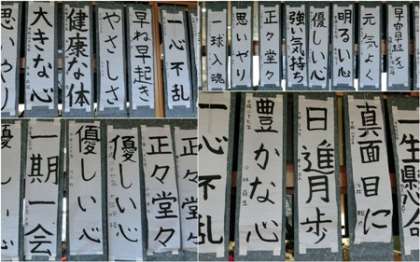 一心不乱
早ね早起き
やさしさ
健康な体
大きな心
思いやり
元気よく
明るい心
優しい心
強い気持ち
正々堂々
思いやり
一球入魂
正々堂々
正々堂々
優しい心
優しい心
一期一会
優しい
一生懸
真面目に
日進月歩
豊かな心
一心不乱